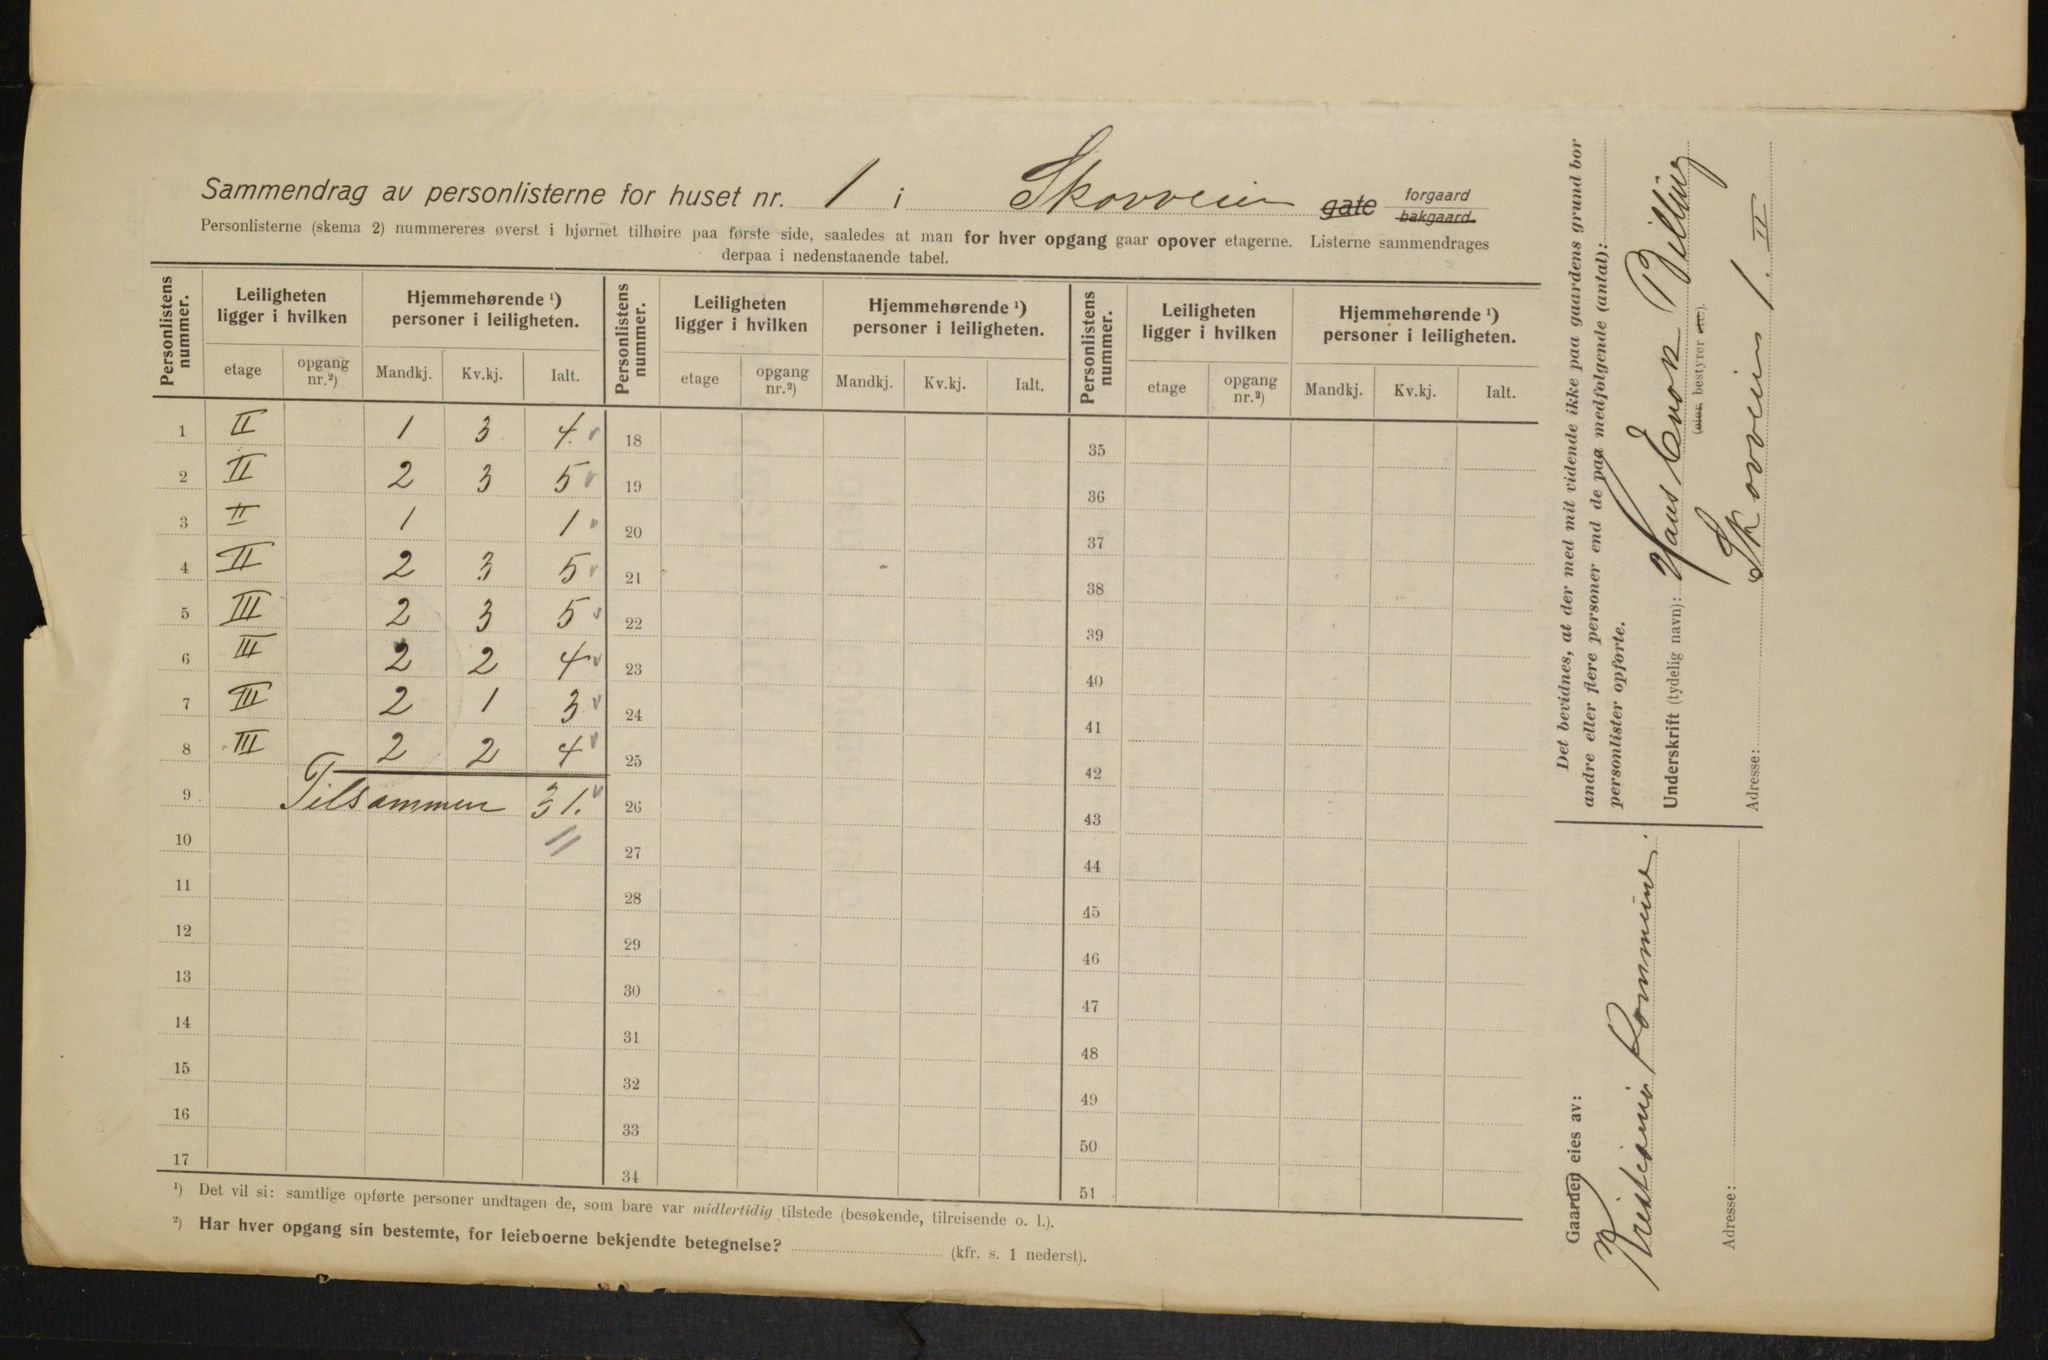 Sammendrag av personlisterne for huset nr. 1 i Skovveien gate forgaard
bakgaard.
Personlisterne (skema 2) nummereres øverst i hjørnet tilhøire paa første side, saaledes at man for hver opgang gaar opover etagerne. Listerne sammendrages
derpaa i nedenstaaende tabel.
Personlistens nummer. Leiligheten ligger i hvilken Hjemmehørende ¹) personer i leiligheten. Personlistens nummer. Leiligheten ligger i hvilken Hjemmehørende ¹) personer i leiligheten. Personlistens nummer. Leiligheten ligger i hvilken Hjemmehørende ¹) personer i leiligheten.
etage opgang nr.²) Mandkj. Kv.kj. Ialt. etage opgang nr.²) Mandkj. Kv.kj. Ialt. etage opgang nr.²) Mandkj. Kv.kj. Ialt.
1 II 1 3 4. 18 35
2 II 2 3 5 19 36
3 II 1 1 20 37
4 II 2 3 5 21 38
5 III 2 3 5 22 39
6 III 2 2 4 23 40
7 III 2 1 3 24 41
8 III 2 2 4 25 42
9 Tilsammen 31. 26 43
10 27 44
11 28 45
12 29 46
13 30 47
14 31 48
15 32 49
16 33 50
17 34 51
¹) Det vil si: samtlige opførte personer undtagen de, som bare var midlertidig tilstede (besøkende, tilreisende o. l.).
²) Har hver opgang sin bestemte, for leieboerne bekjendte betegnelse? (kfr. s. 1 nederst).
Det bevidnes, at der med mit vidende ikke paa gaardens grund bor
andre eller flere personer end de paa medfolgende (antal):
personlister opforte.
Underskrift (tydelig navn): Hans Enok Billing
(eier bestyrer etc.).
Adresse: Skovveien 1. II
Gaarden eies av:
Kristiania Kommune.
Adresse: